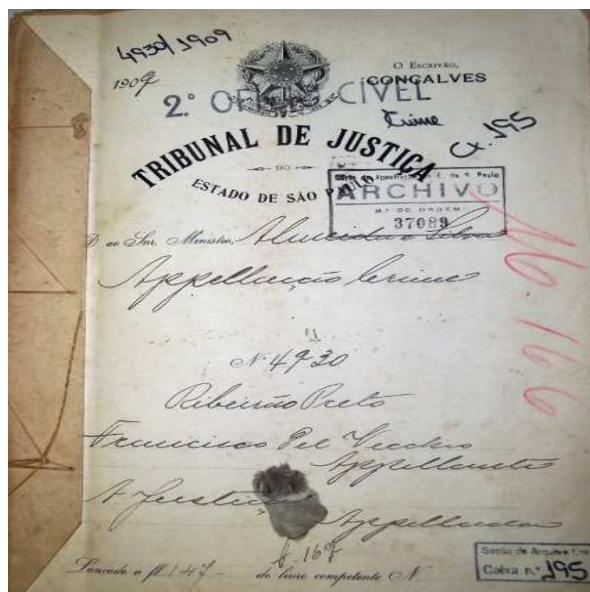 4930/1909
1909
O Escrivão,
GONÇALVES
2.º OFICIO CÍVEL
Crime
Cx. 195
TRIBUNAL DE JUSTIÇA
DO
ESTADO DE SÃO PAULO
ARCHIVO
Nº DE ORDEM
37089
D ao Snr. Ministro, Almeida e Silva
Appellação Crime
16.166
N. 4930
Ribeirão Preto
Francisco Del Vecchio
Appellante
A Justiça
Appellada
fl. 167
Lançado a fl. 147 do livro competente N.
Seção de Arquivo
Caixa n.º 195